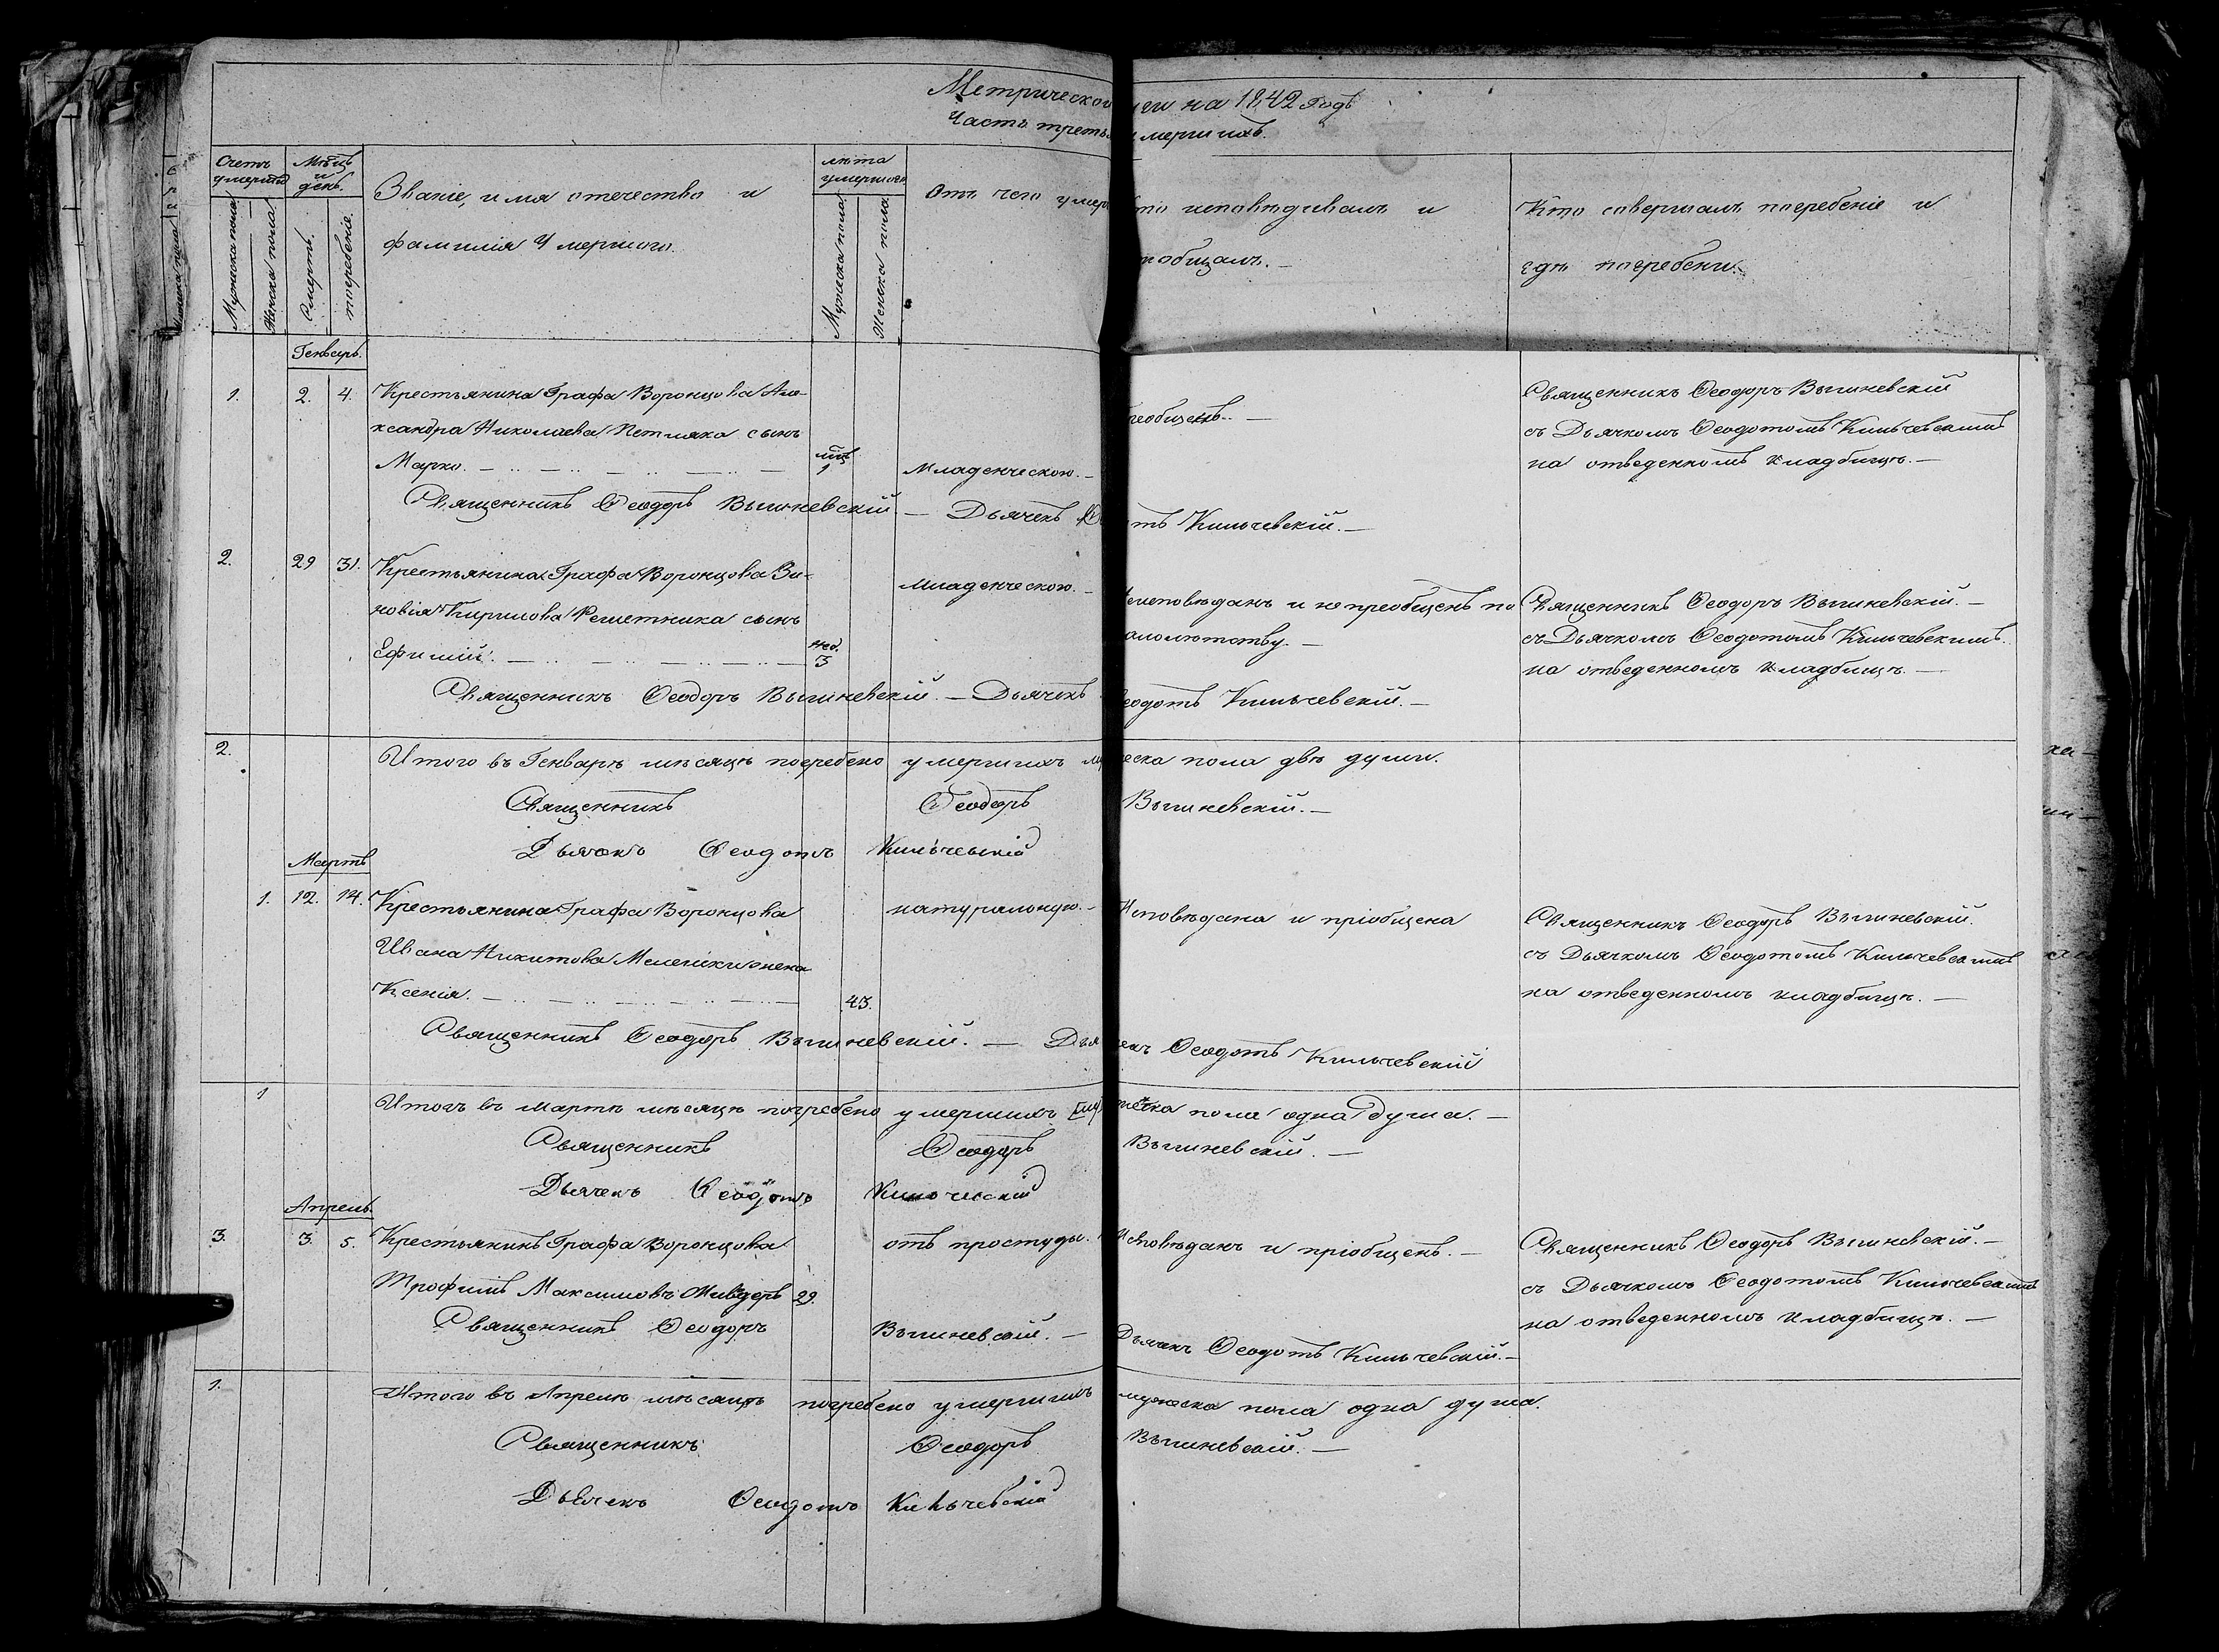 Метрической ги на 1842 Годъ
Часть третья умершихъ.
Счетъ умершихъ
Мѣсяцъ и день.
Званіе, имя отечество и
фамилія Умершого.
лѣта умершаго
Отъ чего умер
Кто исповѣдывалъ и
пріобщалъ.
Кто совершалъ погребеніе и
гдѣ погребены.
Мужеска пола
Женска пола
Смерть.
погребеніе.
Мужеска пола
Женска пола
Генварь.
1. 2. 4. Крестьянина Графа Воронцова Але-
ксандра Николаева Петляка сынъ
Марко. мѣц 1 Младенческою.
преобщенъ.
Священникъ Ѳеодоръ Вышневскій
съ Дьячкомъ Ѳеодотомъ Кильчевскимъ
на отведенномъ кладбищѣ.
Священникъ Ѳеодоръ Вышневскій – Дьячекъ Ѳ тъ Кильчевскій.
2. 29 31. Крестьянина Графа Воронцова Зи-
новія Кирилова Решетника сынъ
Ефимій. нед. 3
Младенческою.
Неисповѣданъ и не преобщенъ по
малолѣтству.
Священникъ Ѳеодоръ Вышневскій.
съ Дьячкомъ Ѳеодотомъ Кильчевскимъ.
на отведенномъ кладбищѣ.
Священникъ Ѳеодоръ Вышневскій – Дьячекъ Ѳеодотъ Кильчевскій.
2. Итого въ Генварѣ мѣсяцѣ погребено умершихъ мужеска пола двѣ души.
Священникъ Ѳеодоръ Вышневскій.
Дьячекъ Ѳеодотъ Кильчевскій
Мартъ
1. 12. 14. Крестьянина Графа Воронцова
Ивана Никитова жена
Ксенія. 43.
натуральную.
Исповѣдана и пріобщена
Священникъ Ѳеодоръ Вышневскій.
съ Дьячкомъ Ѳеодотомъ Кильчевскимъ
на отведенномъ кладбищѣ.
Священникъ Ѳеодоръ Вышневскій. – Дьячекъ Ѳеодотъ Кильчевскій
1 Итогъ въ Мартѣ мѣсяцѣ погребено умершихъ пола одна душа.
Священникъ Ѳеодоръ Вышневскій.
Дьячекъ Ѳеодотъ Кильчевскій
Апрель.
3. 3. 5. Крестьянинъ Графа Воронцова
Трофимъ Максимовъ 29.
отъ простуды.
Исповѣданъ и пріобщенъ.
Священникъ Ѳеодоръ Вышневскій.
съ Дьячкомъ Ѳеодотомъ Кильчевскимъ
на отведенномъ кладбищѣ.
Священникъ Ѳеодоръ Вышневскій. – Дьячекъ Ѳеодотъ Кильчевскій.
1. Итого въ Апрелѣ мѣсяцѣ погребено умершихъ мужеска пола одна душа.
Священникъ Ѳеодоръ Вышневскій.
Дьячекъ Ѳеодотъ Кильчевскій